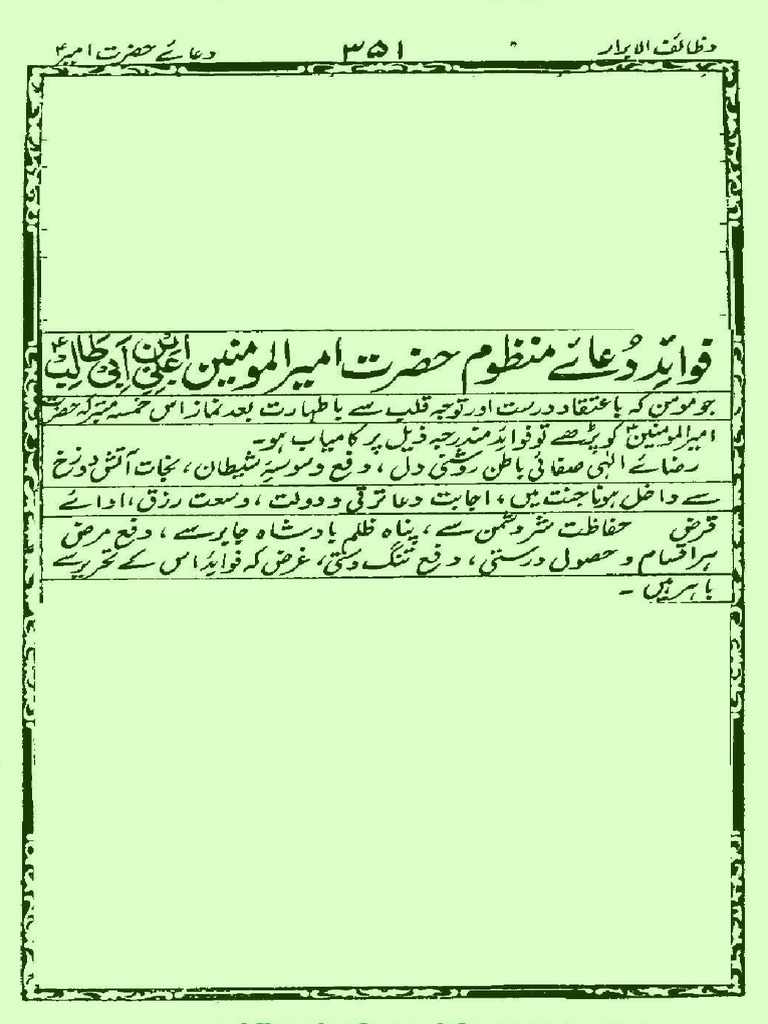 وظائف الابرار ۳۵۱ دعائے حضرت امیرؑ
فوائدِ دُعائے منظوم حضرت امیرالمومنین علیؑ بن ابی طالبؑ
جو مومن کہ باعتقاد درست اور توجہ قلب سے باطہارت بعد نماز اس خمسہ متبرکہ حضرت
امیرالمومنینؑ کو پڑھے تو فوائد مندرجہ ذیل پر کامیاب ہو۔
رضائے الٰہی صفائی باطن روشنی دل ، دفع وسوسۂ شیطان ، نجات آتش دوزخ
سے داخل ہونا جنت میں ، اجابت دعا ترقی و دولت ، وسعت رزق ، ادائے
قرض حفاظت شر دشمن سے ، پناہ ظلم بادشاہ جابر سے ، دفع مرض
ہر اقسام و حصول درستی ، دفع تنگ دستی ، غرض کہ فوائد اس کے تحریر سے
باہر ہیں ۔